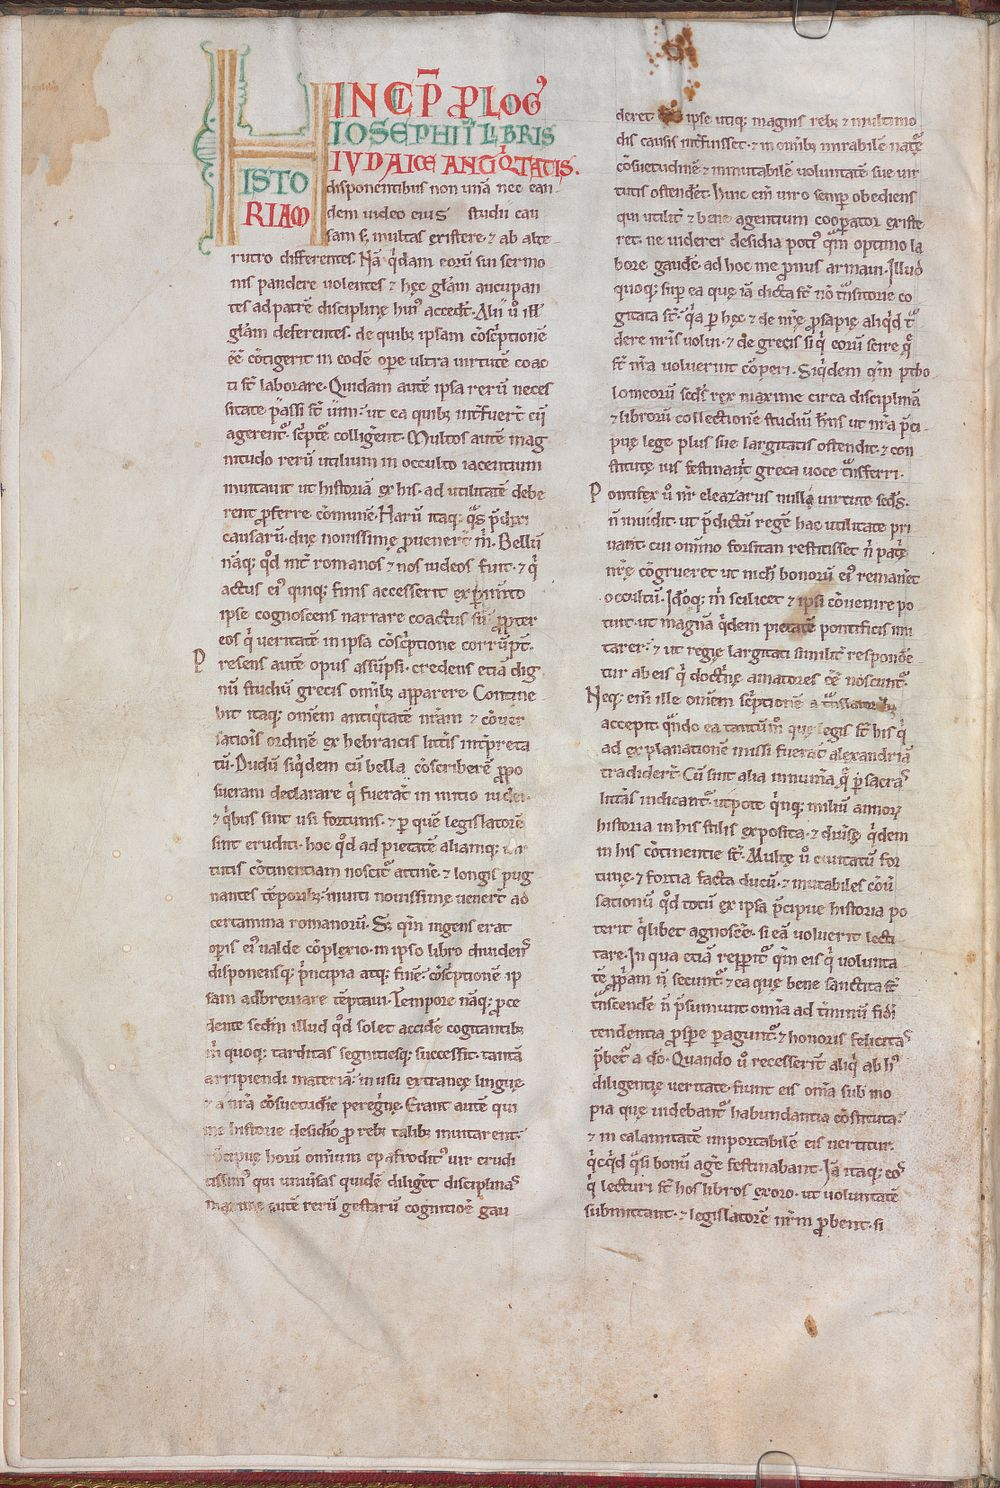 INCIP̄ P̲LOG᾿
IOSEPHI I LIBRIS
IVDAICE ANTIQ̇TATIS.
HISTO
RIAM
disponentibus non unā nec ean
dem uideo eius studii cau
sam s; multas existere· ⁊ ab alte
rutro differentes. Nā q̇dam eorū sui sermo
nis pandere uolentes ⁊ hęc gl̄am aucupan
tes ad patrē disciplinę hui᾿ accedt̄. Alii ū ill᾿
gl̄am deferentes. de quib; ipsam cōsc̄ptionē
ēē cōtigerit in eodē opere ultra uirtutē coac
ti st̄ laborare. Quidam autē ipsa rerū neces
sitate passi st̄ ut ea quib; int̄fuer̄t cū
agerent᾿. sc̄pt̄e collig̅ent. Multos autē mag
nitudo rerū utilium in occulto iacentium
inuitauit ut historiā ex his· ad utilitatē debe
rent proferre cōmunē. Harū itaq; q̄s p̄dixi
causarū. duę nouissimę prouener̄t m̄. Bellū
nāq; q̇d int̄ romanos ⁊ nos iudeos fuit· ⁊ q̇
actus ei᾿ quiq; finis accesserit experim̄to
ipse cognoscens narrare coactus sū propter
eos q̇ ueritatē in ipsa cōsc̄ptione corrūpt̄.
Presens autē opus assūpsi· credens etiā dig
nū studiū grecis omīb; apparere. Contine
bit itaq; om̄em antiq̇tatē nr̄am ⁊ cōuer
sationis ordinē ex hebraicis litt̄is int̄preta
tū. Dudū siq̇dem cū bella cōscriberē propo
sueram declarare q̇ fuerāt in initio iudei·
⁊ q̇bus sint usi fortunis· ⁊ per quē legislatorē
sint eruditi· hoc q̇d ad pietatē aliamq; uir
tutis cōtinentiam noscit᾿ attinē· ⁊ longis pug
nantes tēporib; inuiti nouissimę uener̄t ad
certamina romanorū. S; qm̄ ingens erat
operis ei᾿ ualde cōplexio· in ipso libro diuidens
disponensq; p̄ncipia atq; finē· cōsc̄ptionē ip
sam adbreuiare tēptaui. Tempore nāq; proce
dente sed̄m illud q̇d solet accidē cogitantib;
m̄ quoq; tarditas segnitiesq; successit· tantā
arripiendi materiā· in usu extraneę linguę
⁊ a nr̄a cōsuetudīe peregrinę. Erant autē qui
me historie desidio pro reb; talib; inuitarent·
p̄cipuę horū omnium epafrodit᾿ uir erudi
tissim᾿ qui uniūsas quidē diliget disciplinas
maxime autē rerū gestarū cognitiōē gau
deret· ipse utiq; magnis reb; ⁊ multimo
dis causis int̄fuisset· ⁊ in omīb; mirabilē natᷓę
cōsuetudinē ⁊ inmutabilē uoluntatē sue uir
tutis ostendēt. Huic em̄ uiro semper obediens
qui utilit̄ ⁊ bene agentium cooperator existe
ret· ne uiderer desidia poti᾿ qm̄ optimo la
bore gaudē· ad hoc me pronius armaui. Illud
quoq; super ea quę iā dicta st̄ nō tᷓnsitorie co
gitata st̄· q̇a per hęc ⁊ de nr̄ę prosapię aliq̇d tᷓ
dere nr̄is uolui· ⁊ de grecis si q̇ eorū scire quę
st̄ nr̄a uoluerint cōperi. Siq̇dem qm̄ ptho
lomeorū sed̄s rex maxime circa disciplinā
⁊ librorū collectionē studiū hn̄s ut nr̄a p̄ci
puę lege plus sue largitatis ostendit· ⁊ con
stitutę ius festinauit greca uoce tᷓnsferri.
Pontifex ū nr̄ eleazarus nullę uirtute sed̄s·
n̄ inuidit· ut p̄dictū regē hac utilitate pri
uaret· cui omīno forsitan restitisset n̄ patę
nr̄ę cōgrueret ut nich̄ bonorū ei᾿ remanēt
occultū. Idōq; m̄ scilicet ⁊ ipsi cōuenire po
tuit· ut magnā q̇dem pietatē pontificis imi
tarer· ⁊ ut regię largitati similit̄ respondē
tur ab eis q̇ doctrinę amatores ēē noscunt᾿.
Neq; em̄ ille om̄em sc̄ptionē a tᷓnslatorib;
accepit· q̇ndo ea tantum̄ quę legis st̄ his q̇
ad explanationē missi fuerāt alexandriā
tradider̄t. Cū sint alia innum̄a quę per sacras
litt̄as indicant᾿· utpote q̇nq; miliū annorum
historia in his stilis exposita· ⁊ diūsę q̇dem
in his cōtinentie st̄. Multę ū ciuitatum for
tunę· ⁊ fortia facta ducū· ⁊ mutabiles cōū
sationū q̇d totū ex ipsa p̄cipue historia po
terit q̇libet agnoscē· si eā uoluerit lecti
tare. In qua etiā repperit᾿ qm̄ eis q̇ uolunta
tē propriam n̄ secunt᾿ ⁊ ea quę bene sanctita st̄
tᷓnscendē n̄ p̄sumunt om̄ia ad t̄minū fidi
tendentia prospere peragunt᾿· ⁊ honoris felicitas
p̄bet᾿ a do̅. Quando ū recesserint aliq̇ ab h᾿
diligentię ueritate· fiunt eis om̄ia sub ino
pia quę uidebant᾿ habundantia cōstituta·
⁊ in calamitatē inportabilē eis uertitur
q̇cq̇d q̇si bonū agē festinabant. Iā itaq; eos
q̇ lecturi st̄ hos libros exoro· ut uoluntatē
submittant· ⁊ legislatorē nr̄m probent· si